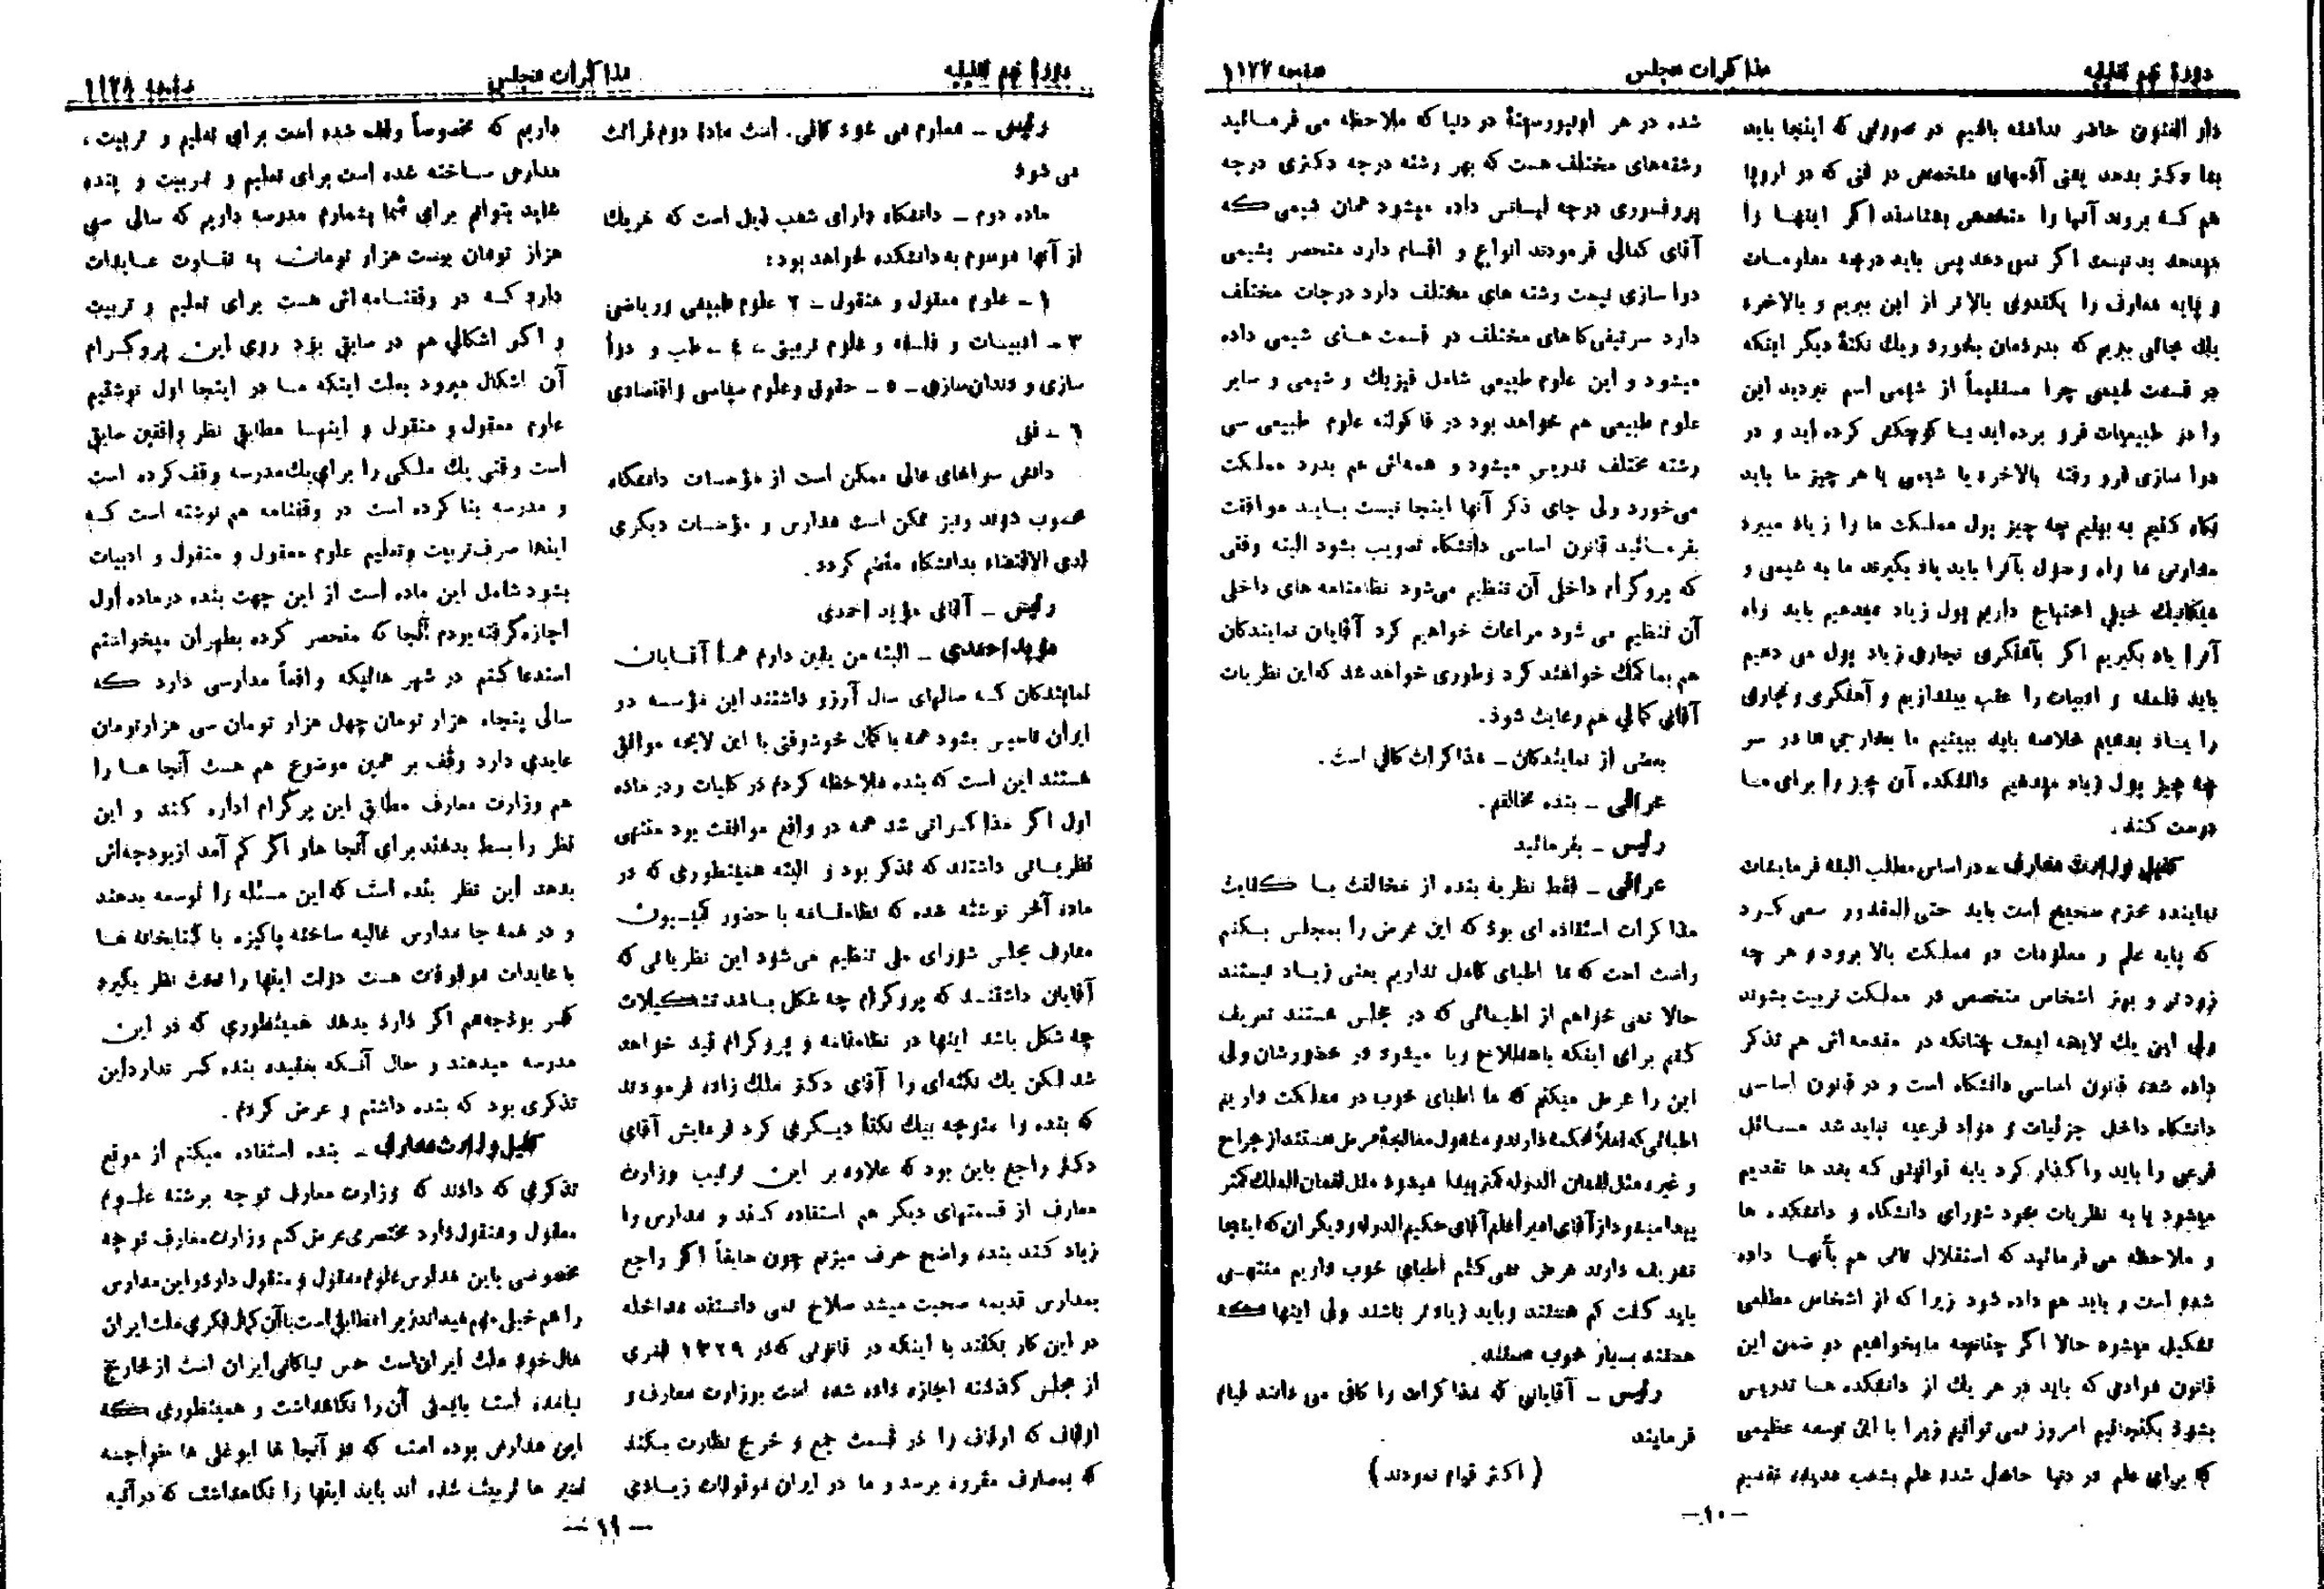 دوره نهم تقنینیه
مذاکرات مجلس
صفحه ۱۱۲۷
دار الفنون حاضر نداشته باشیم در صورتی که اینجا باید
بما دکتر بدهد یعنی آدمهای متخصص در فنی که در اروپا
هم کـه بروند آنها را متخصص بشناسند اگر اینهـا را
میدهد بد نیست اگر نمی دهد پس باید درجه معلومـات
و پایه معارف را یکقدری بالاتر از این ببریم و بالاخره
یك جائی ببریم که بدردمان بخورد ویك نکتۀ دیگر اینکه
در قسمت طبیعی چرا مستقیماً از شیمی اسم نبردید این
را در طبیعیات فرو برده اید یـا کوچکش کرده اید و در
دوا سازی فرو رفته بالاخره یا شیمی یا هر چیز ما باید
نگاه کنیم به بینیم چه چیز پول مملکت ما را زیاد میبرد
مدارس ما راه وصول بآنرا باید یاد بگیرند ما به شیمی و
میکانیك خیلی احتیاج داریم پول زیاد میدهیم باید راه
آنرا یاد بگیریم اگر بآهنگری نجاری زیاد پول می دهیم
باید فلسفه و ادبیات را عقب بیندازیم و آهنگری و نجاری
را یـاد بدهیم خلاصه باید ببینیم ما بخارجی ها در سر
چه چیز پول زیاد میدهیم دانشکده آن چیز را برای مـا
درست کند.
کفیل وزارت معارف ـ در اساس مطلب البته فرمایشات
نماینده محترم صحیح است باید حتی المقدور سعی کـرد
که پایه علم و معلومات در مملکت بالا برود و هر چه
زودتر و بهتر اشخاص متخصص در مملکت تربیت بشوند
ولی این یك لایحه ایست چنانکه در مقدمه اش هم تذکر
داده شده قانون اساسی دانشگاه است و در قانون اساسی
دانشگاه داخل جزئیات و مواد فرعیه نباید شد مسـائل
فرعی را باید واگذار کرد یابه قوانینی که بعد ها تقدیم
میشود یا به نظریات خود شورای دانشگاه و دانشکده ها
و ملاحظه می فرمائید که استقلال تامی هم بآنهـا داده
شده است و باید هم داده شود زیرا که از اشخاص مطلعی
تشکیل میشود حالا اگر چنانچه مابخواهیم در ضمن این
قانون موادی که باید در هر یك از دانشکده هـا تدریس
بشود بگنجانیم امروز نمی توانیم زیرا با این توسعه عظیمی
که برای علم در دنیا حاصل شده علم بشعب عدیده تقسیم
شده در هر اونیورسیتۀ در دنیا که ملاحظه می فرمـائید
رشته‌های مختلف هست که بهر رشته درجه دکتری درجه
پروفسوری درجه لیسانس داده میشود همان شیمی کـه
آقای کمالی فرمودند انواع و اقسام دارد منحصر بشیمی
دوا سازی نیست رشته های مختلف دارد درجات مختلف
دارد سرتیفی‌کا های مختلف در قسمت هـای شیمی داده
میشود و این علوم طبیعی شامل فیزیك و شیمی و سایر
علوم طبیعی هم خواهد بود در فاکولته علوم طبیعی سی
رشته مختلف تدریس میشود و همه‌اش هم بدرد مملـکت
می‌خورد ولی جای ذکر آنها اینجا نیست بـایـد موافقت
بفرمـائید قانون اساسی دانشگاه تصویب بشود البته وقتی
که پروگرام داخلی آن تنظیم می‌شود نظامنامه های داخلی
آن تنظیم می شود مراعات خواهیم کرد آقایان نمایندگان
هم بما کمك خواهند کرد وطوری خواهد شد که این نظریات
آقای کمالی هم رعایت شود.
بعضی از نمایندگان ـ مذاکرات کافی است.
عراقی ـ بنده مخالفم.
رئیس ـ بفرمائید
عراقی ـ فقط نظریۀ بنده از مخالفت بـا کـفایت
مذاکرات استفاده ای بود که این عرض را بمجلس بـکنم
راست است که ما اطبای کامل نداریم یعنی زیـاد نیستند
حالا نمی خواهم از اطبـائی که در مجلس هستند تعریف
کنم برای اینکه باصطلاح ریا میشود در حضورشان ولی
این را عرض میکنم که ما اطبای خوب در مملکت داریم
اطبائی که فعلاً محکمه دارند و مشغول معالجۀ مرض هستند از جراح
و غیره مثل لقمان الدوله کمتر پیدا میشود مثل لقمان الملك کمتر
پیدا میشود از آقای امیر اعلم آقای حکیم الدوله و دیگران که اینجا
تشریف دارند عرض نمی کنم اطبای خوب داریم منتهـی
باید گفت کم هستند وباید زیادتر باشند ولی اینها کـه
هستند بسیار خوب هستند.
رئیس ـ آقایانی که مذاکرات را کافی می دانند قیام
فرمایند
(اکثر قیام نمودند)
ـ ۱۰ ـ
دوره نهم تقنینیه
مذاکرات مجلس
صفحه ۱۱۲۸
رئیس ـ معلوم می شود کافی. است مادۀ دوم قرائت
می شود
ماده دوم ـ دانشگاه دارای شعب ذیل است که هریك
از آنها موسوم به دانشکده خواهد بود:
۱ ـ علوم معقول و منقول ـ ۲ علوم طبیعی وریاضی
۳ ـ ادبیـات و فلسفه و علوم تربیتی ـ ٤ ـ طب و دوا
سازی و دندان‌سازی ـ ٥ ـ حقوق وعلوم سیاسی واقتصادی
٦ ـ فنی
دانش سراهای عالی ممکن است از مؤسسات دانشگاه
محسوب شوند ونیز ممکن است مدارس و مؤسسات دیگری
لدی الاقتضاء بدانشگاه منضم گردد.
رئیس ـ آقای مؤید احمدی
مؤید احمدی ـ البته من یقین دارم همۀ آقـایان
نمایندگان کـه سالهای سال آرزو داشتند این مؤسسه در
ایران تأسیس بشود همه باکمال خوشوقتی با این لایحه موافق
هستند این است که بنده ملاحظه کردم در کلیات ودر ماده
اول اگر مذاکـراتی شد همه در واقع موافقت بود منتهی
نظریـاتی داشتند که تذکر بود و البته همینطوری که در
مادۀ آخر نوشته شده که نظامنـامه با حضور کمیـسیون
معارف مجلس شورای ملی تنظیم می‌شود این نظریاتی که
آقایان داشتنـد که پروگرام چه شکل بـاشد تشـکیلات
چه شکل باشد اینها در نظامنامه و پروگرام قید خواهد
شد لکن یك نکته‌ای را آقای دکتر ملك زاده فرمودند
که بنده را متوجه بیك نکتۀ دیـگری کرد فرمایش آقای
دکتر راجع باین بود که علاوه بر این ترتیب وزارت
معارف از قسمتهای دیگر هم استفاده کـند و مدارس را
زیاد کند بنده واضح حرف میزنم چون سابقاً اگر راجع
بمدارس قدیمه صحبت میشد صلاح نمی دانستند مداخله
در این کار بکنند با اینکه در قانونی که‌در ۱۳۲۹ قمری
از مجلس گذشته اجازه داده شده است بوزارت معارف و
اوقاف که اوقاف را در قسمت جمع و خرج نظارت بـکند
که بمصارف مقرره برسد و ما در ایران موقوفات زیـادی
داریم که مخصوصاً وقف شده است برای تعلیم و تربیت،
مدارس سـاخته شده است برای تعلیم و تربیت و بنده
شاید بتوانم برای شما بشمارم مدرسه داریم که سالی سی
هزار تومان بیست هزار تومان به تفاوت عـایدات
دارد کـه در وقفنـامه‌اش هست برای تعلیم و تربیت
و اگر اشکالی هم در سابق بود روی این پروگـرام
آن اشکال میرود بعلت اینکه مـا در اینجا اول نوشتیم
علوم معقول و منقول و اینهـا مطابق نظر واقفین سابق
است وقتی یك ملکی را برای یك مدرسه وقف کرده است
و مدرسه بنا کرده است در وقفنامه هم نوشته است کـه
اینها صرف تربیت وتعلیم علوم معقول و منقول و ادبیات
بشود شامل این ماده است از این جهت بنده درماده اول
اجازه گرفته بودم آنجا که منحصر کرده بطهران میخواستم
استدعا کنم در شهر هائیکه واقعاً مدارسی دارد کـه
سالی پنجاه هزار تومان چهل هزار تومان سی هزارتومان
عایدی دارد وقف بر همین موضوع هم هست آنجا هـا را
هم وزارت معارف مطابق این پرگرام اداره کند و این
نظر را بسط بدهند برای آنجا هاو اگر کم آمد ازبودجه‌اش
بدهد این نظر بنده است که این مسئله را توسعه بدهند
و در همه جا مدارس عالیه ساخته پاکیزه با کتابخانه هـا
با عایدات موقوفات هست دولت اینها را تحت نظر بگیرد
کسر بودجه‌هم اگر دارد بدهد همینطوری که در این
مدرسه میدهند و حال آنـکه بعقیده بنده کسر نداردا‌ین
تذکری بود که بنده داشتم و عرض کردم.
کفیل وزارت معارف ـ بنده استفاده میکنم از موقع
تذکری که دادند که وزارت معارف توجه برشته علـوم
معقول ومنقول دارد مختصری عرض کنم وزارت معارف توجه
مخصوصی باین مدارس علوم معقول و منقول دارد و این مدارس
را هم خیلی مهم میداند زیرا مطالبی است با آن کمال فکری ملت ایران
مال خود ملت ایران است حس نیاکانی ایران است از خارج
نیامده است بایستی آن را نگاهداشت و همینطوری کـه
این مدارس بوده است که در آنجا ها ابوعلی ها خواجـه
نصیر ها تربیت شده اند باید اینها را نگاهداشت که درآتیه
ـ ۱۱ ـ